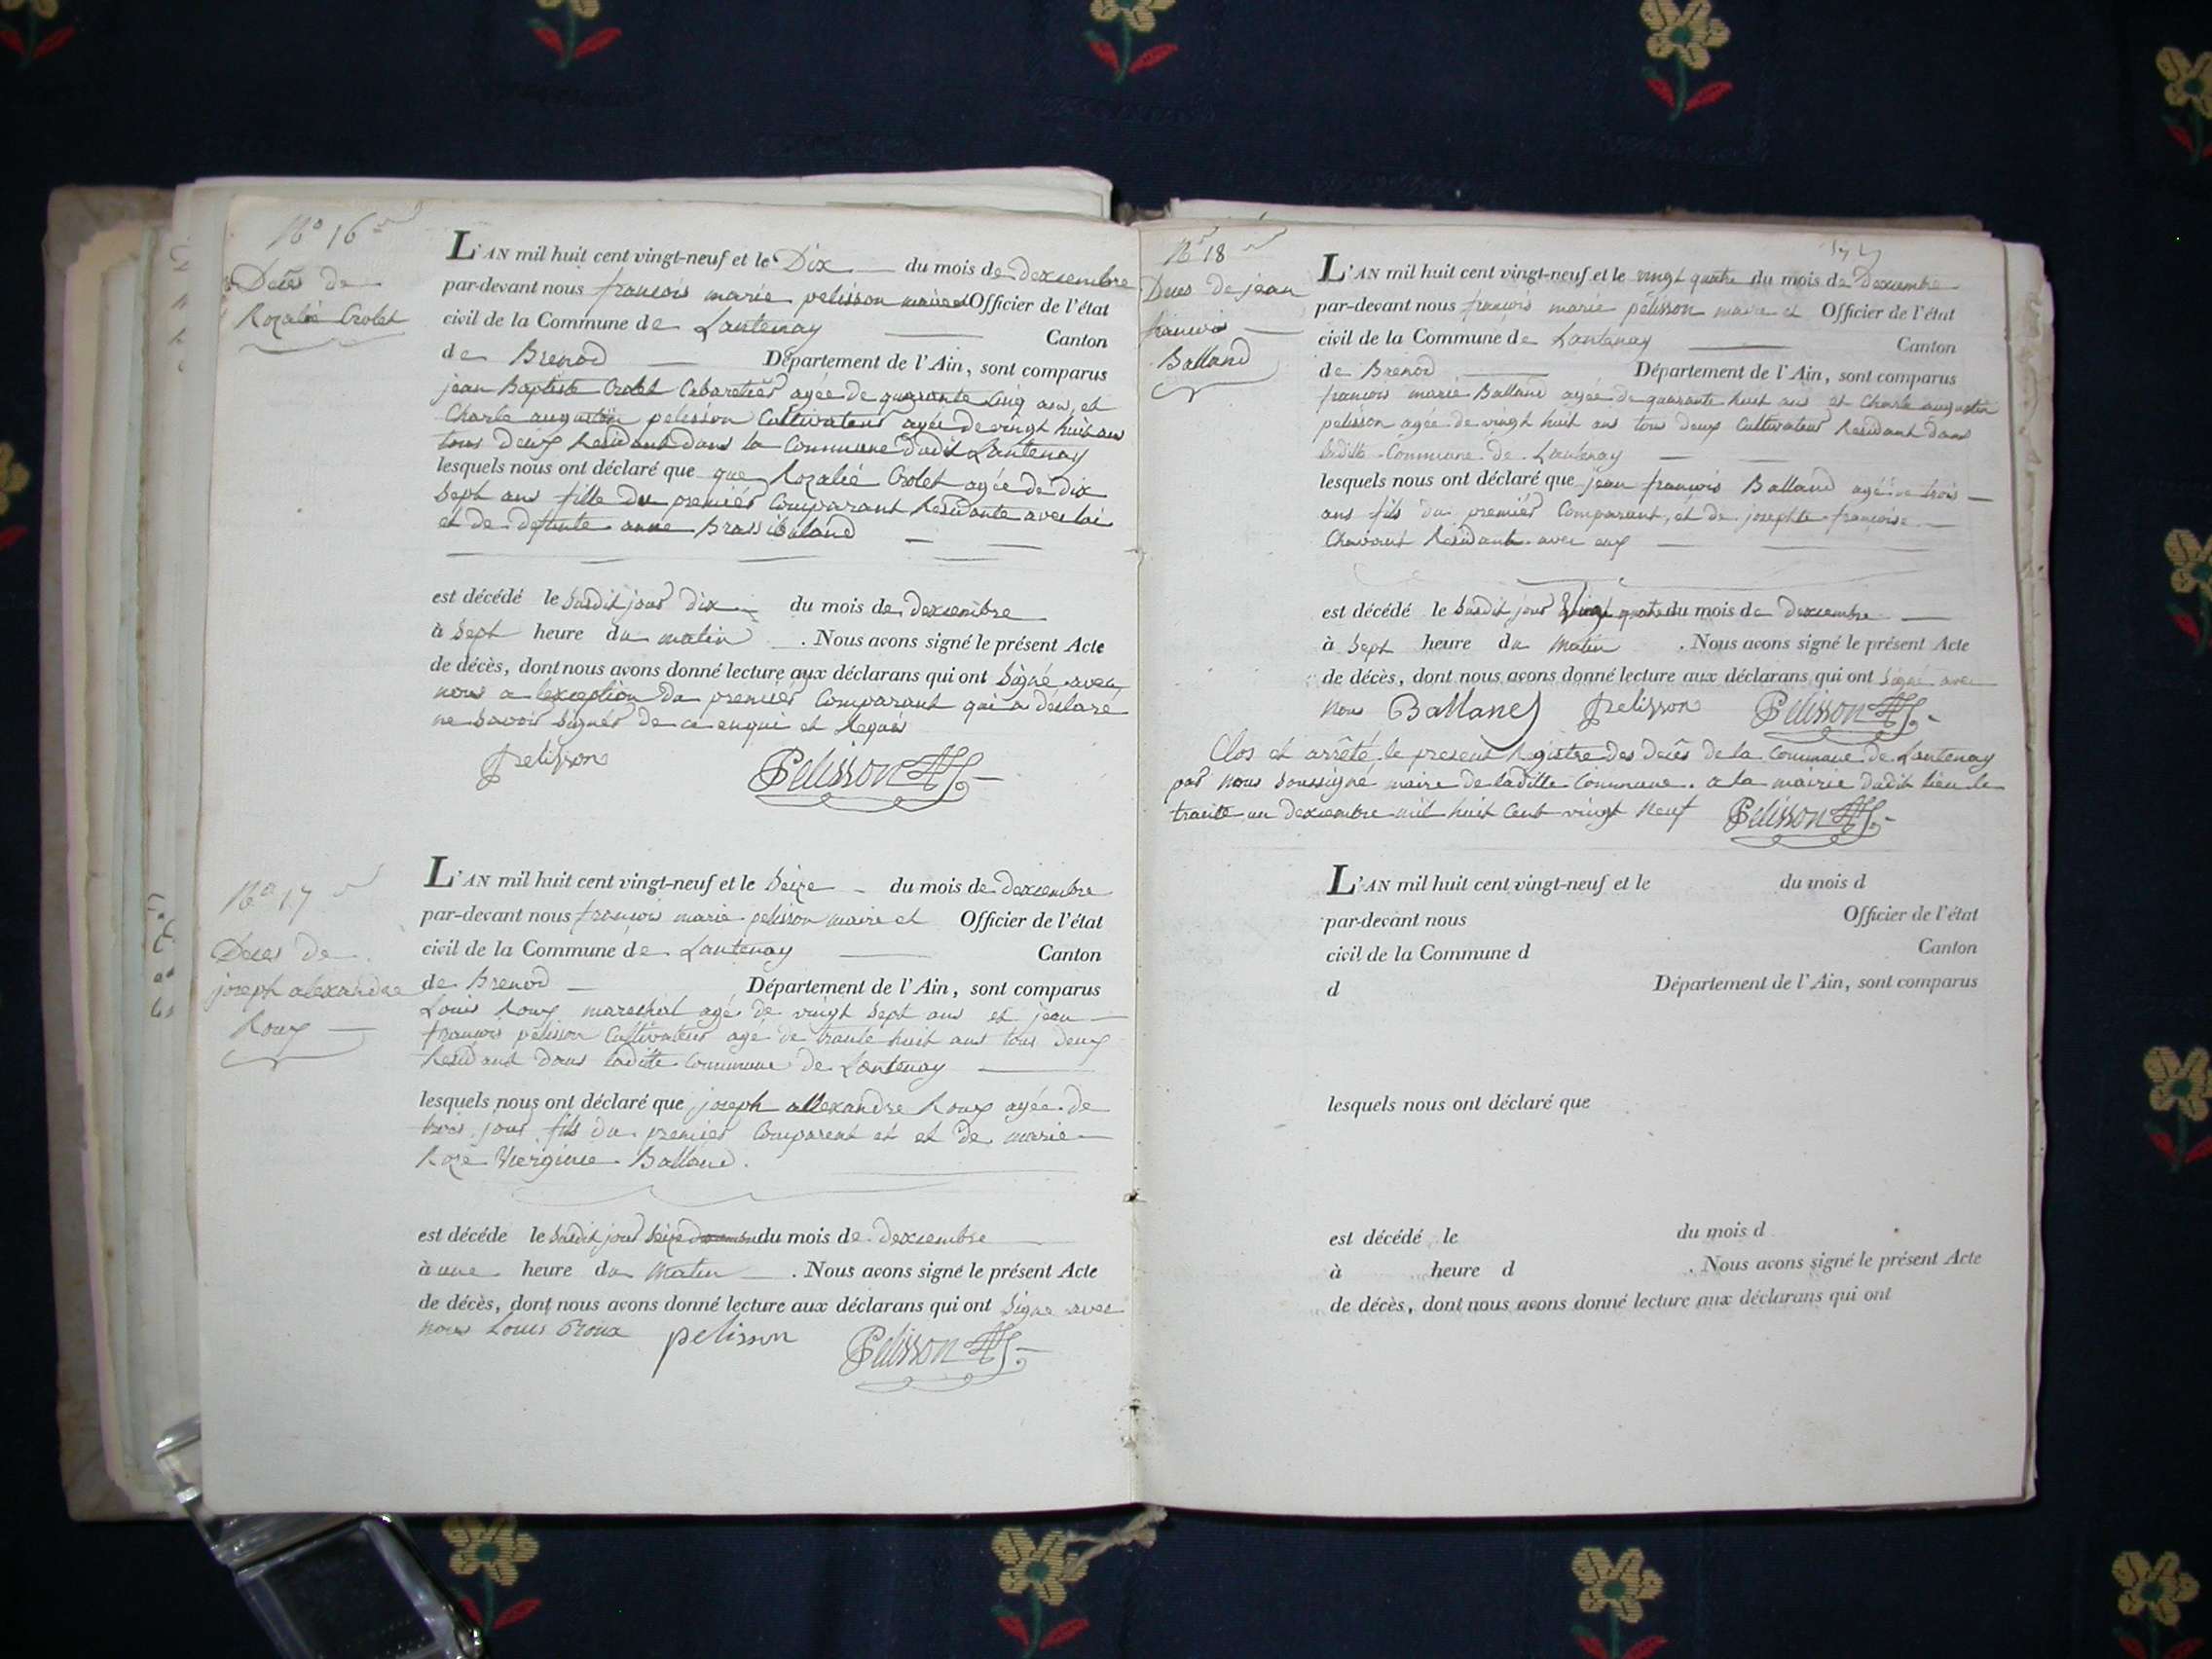 No 16
Decès de
Rozalie Crolet
L'AN mil huit cent vingt-neuf et le Dix du mois de dexcembre
par-devant nous francois marie pelisson maire et Officier de l'état
civil de la Commune de Lantenay Canton
de Brenod Département de l'Ain, sont comparus
jean Baptiste Crolet Cabaretier agée de quarante Cinq ans, et
Charle augustin pelisson Cultivateur agée de vingt huit ans
tous deux Residant dans la Commune dudit Lantenay
lesquels nous ont déclaré que que Rozalié Crolet agée de dix
Sept ans fille du premier Comparant Residante avec lui
et de defunte anne Brassi Baland
est décédé le Susdit jour dix du mois de dexcembre
à Sept heure du matin . Nous avons signé le présent Acte
de décès, dont nous avons donné lecture aux déclarans qui ont Signé avec
nous a lexception du premier Comparant qui a déclaré
ne Savoir Signer de ce enqui et Requis
Pelisson Pelisson
No 17
Deces de
joseph alexandre
Roux
L'AN mil huit cent vingt-neuf et le Seize du mois de dexcembre
par-devant nous francois marie pelisson maire et Officier de l'état
civil de la Commune de Lantenay Canton
de Brenod Département de l'Ain, sont comparus
Louis Roux marechal agé de vingt Sept ans et jean
francois pelisson Cultivateur agé de trante huit ans tous deux
Residant dans laditte Commune de Lantenay
lesquels nous ont déclaré que joseph allexandre Roux agée de
trois jour fils du premier Comparent et et de marie
Roze Vierginie Balland.
est décéde le Susdit jour Seize du mois de dexcembre
à une heure du Matin . Nous avons signé le présent Acte
de décès, dont nous avons donné lecture aux déclarans qui ont Signe avec
nous Louis Roux pelisson Pelisson
No 18
Deces de jean
francois
Balland
L'AN mil huit cent vingt-neuf et le vingt quatre du mois de Dexcembre
par-devant nous francois marie pelisson maire et Officier de l'état
civil de la Commune de Lantenay Canton
de Brenod Département de l'Ain, sont comparus
francois marie Balland agée de quarante huit ans et Charle augustin
pelisson agée de vingt huit ans tous deux Cultivateur Residant dans
laditte Commune de Lantenay
lesquels nous ont déclaré que jean francois Balland agée de trois
ans fils du premier Comparant, et de josephte francoise
Residant avec eux
est décédé le Susdit jour Vingt quatre du mois de dexcembre
à Sept heure du Matin . Nous avons signé le présent Acte
de décès, dont nous avons donné lecture aux déclarans qui ont Signé avec
nous Balland Pelisson Pelisson
Clos et arrêté le present Registre des decès de la Commune de Lantenay
par nous Soussigné maire de laditte Commune. a la mairie dudit lieu le
trante un dexcembre mil huit Cent vingt Neuf Pelisson
L'AN mil huit cent vingt-neuf et le du mois d
par-devant nous Officier de l'état
civil de la Commune d Canton
d Département de l'Ain, sont comparus
lesquels nous ont déclaré que
est décédé le du mois d
à heure d . Nous avons signé le présent Acte
de décès, dont nous avons donné lecture aux déclarans qui ont